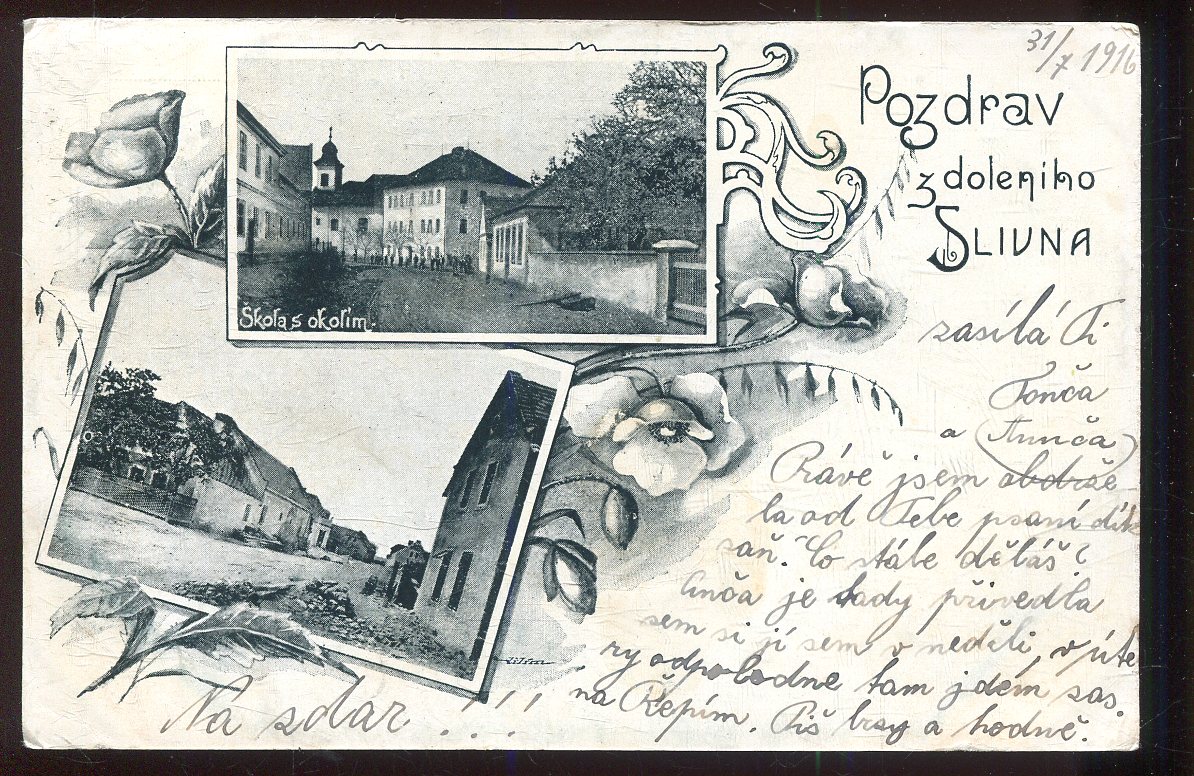 31/7 1916
Pozdrav
z doleniho
SLIVNA
Škola s okolím.
zasílá Ti
Tonča
a (Annča)
Právě jsem obdrže
la od Tebe psaní dík
zaň. Co stále děláš?
Anča je tady přivedla
sem si jí sem v neděli, v úte
ry odpoledne tam jdem zas.
na Řepím. Piš brzy a hodně.
Na zdar!!!